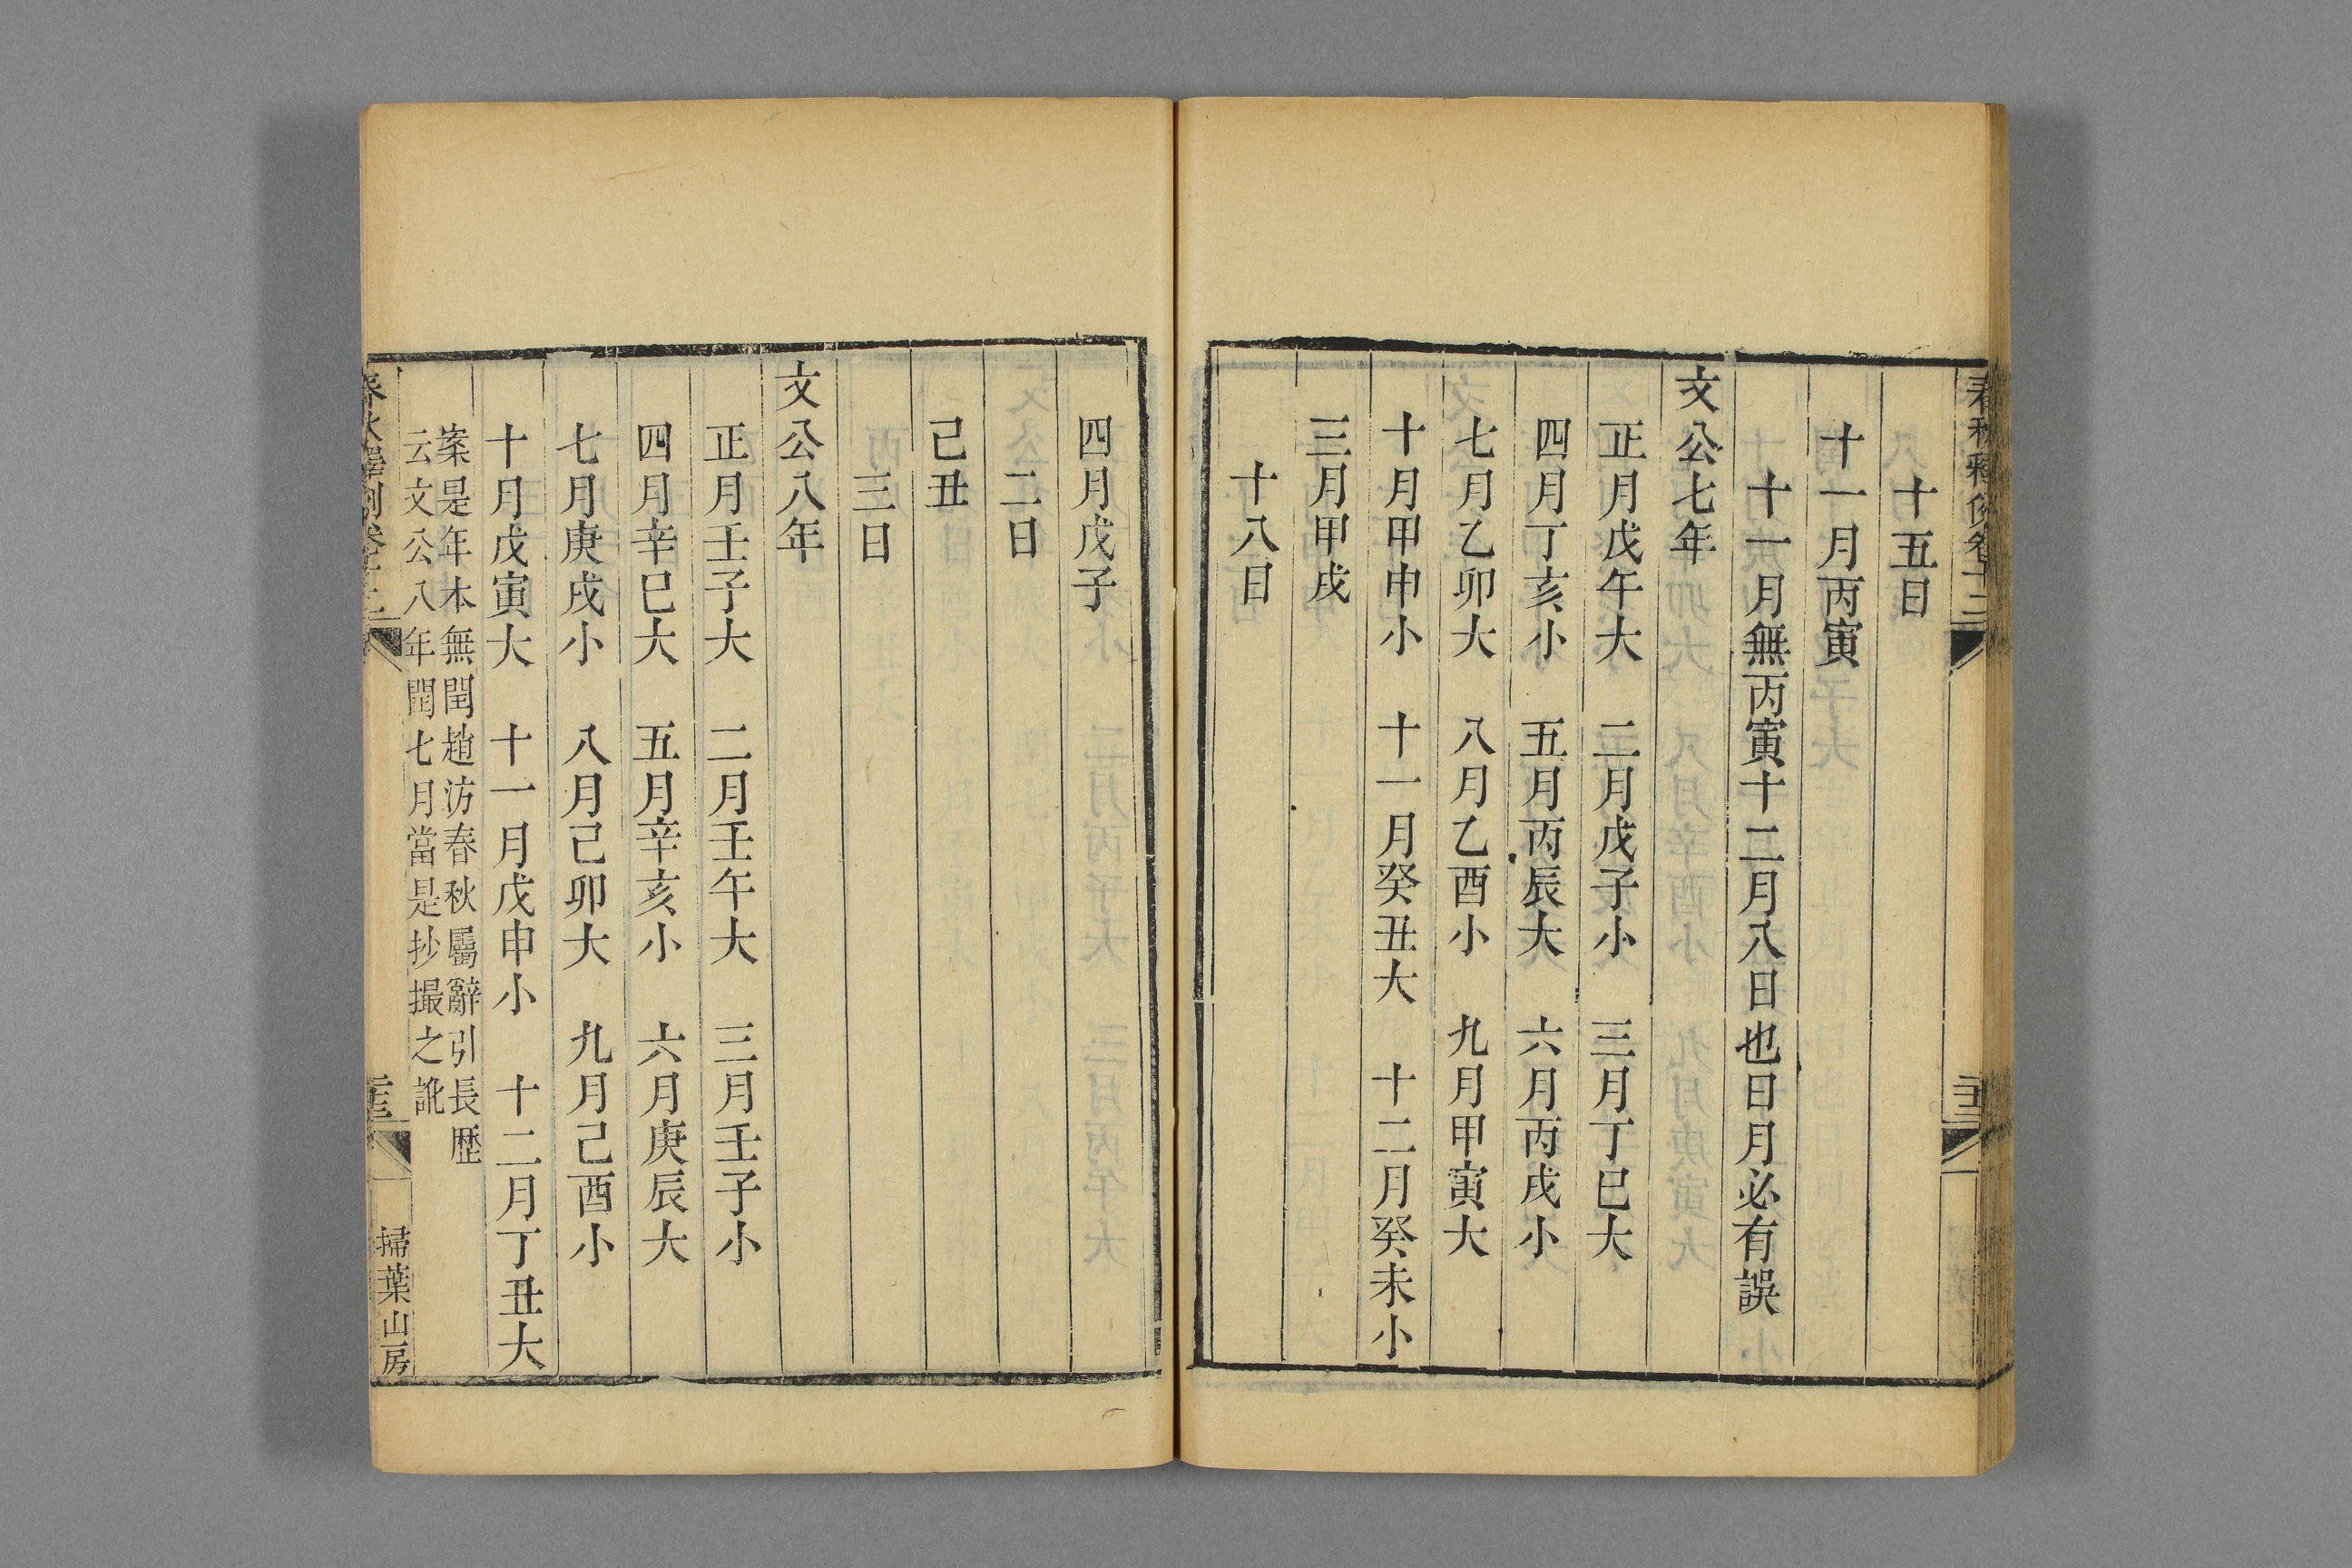 春秋釋例卷十二
十五日
十一月丙寅
十一月無丙寅十二月八日也日月必有誤
文公七年
正月戊午大　二月戊子小　三月丁巳大
四月丁亥小　五月丙辰大　六月丙戌小
七月乙卯大　八月乙酉小　九月甲寅大
十月甲申小　十一月癸丑大　十二月癸未小
三月甲戌
十八日
四月戊子
二日
己丑
三日
文公八年
正月壬子大　二月壬午大　三月壬子小
四月辛巳大　五月辛亥小　六月庚辰大
七月庚戌小　八月己卯大　九月己酉小
十月戊寅大　十一月戊申小　十二月丁丑大
案是年本無閏趙汸春秋屬辭引長歷
云文公八年閏七月當是抄撮之訛
春秋釋例卷十二
掃葉山房